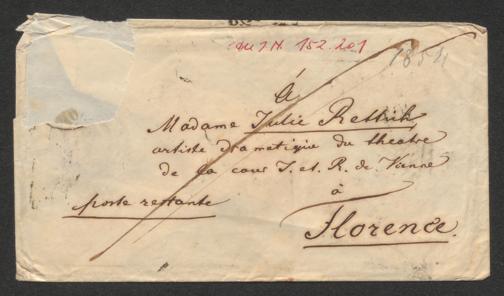 zu I.N. 152.201
1854
À
Madame Julie Rettich
artiste dramatique du théatre
de la cour I. et R. de Vienne
à
poste restante
Florence.